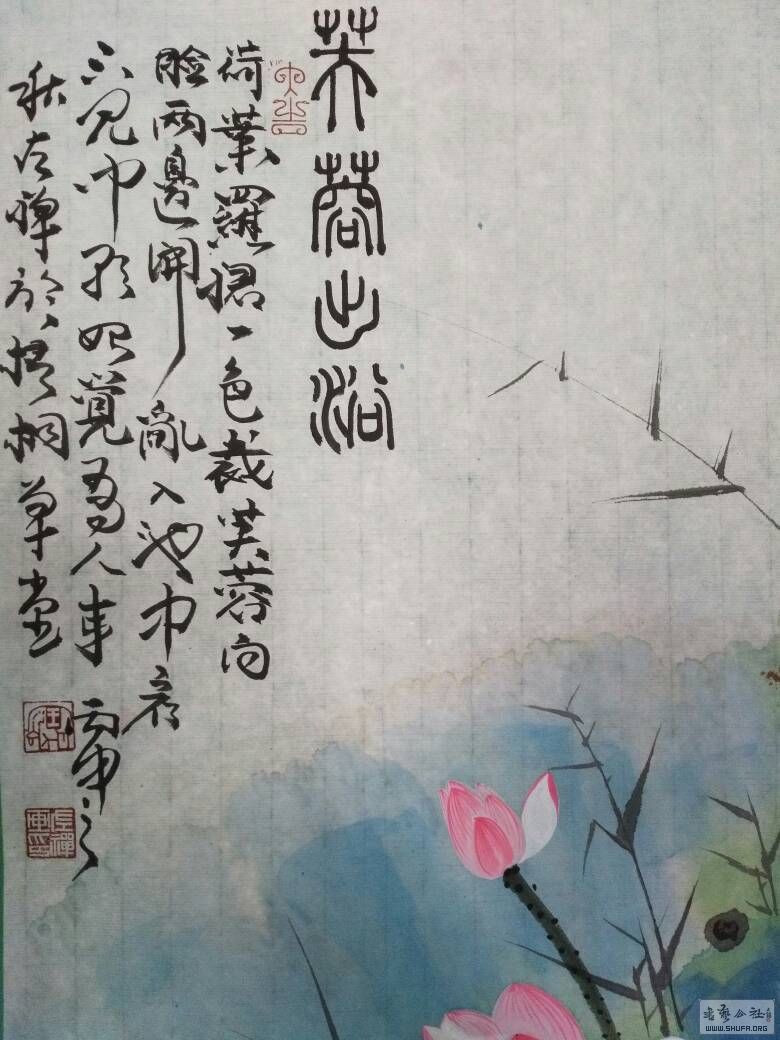 芙蓉出浴
荷葉羅裙一色裁芙蓉向
臉兩邊開亂入池中看
不見聞歌始覺有人来 丙申之
秋左禅於梧桐草堂
书艺公社
WWW.SHUFA.ORG